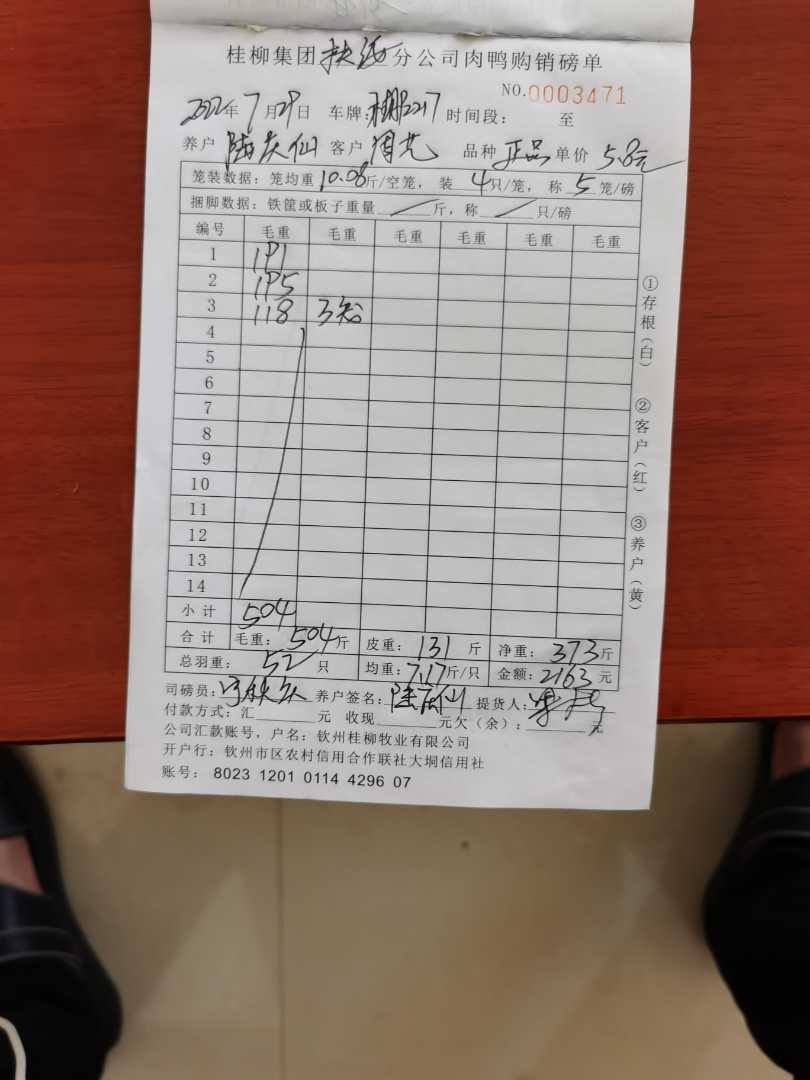 桂柳集团扶绥分公司肉鸭购销磅单
NO.0003471
2022年7月29日 车牌: 时间段: 至
养户 客户 品种 正品 单价 5.8元
笼装数据: 笼均重10.08斤/空笼, 装4只/笼, 称5笼/磅
捆脚数据: 铁筐或板子重量/斤, 称/只/磅
编号 毛重 毛重 毛重 毛重 毛重 毛重
1 191
2 195
3 118 3笼
4
5
6
7
8
9
10
11
12
13
14
小计 504
合计 毛重: 504斤 皮重: 131斤 净重: 373斤
总羽重: 52只 均重: 7.17斤/只 金额: 2163元
司磅员: 养户签名: 提货人:
付款方式: 汇 元 收现 元欠(余): 元
公司汇款账号, 户名: 钦州桂柳牧业有限公司
开户行: 钦州市区农村信用合作联社大垌信用社
账号: 8023 1201 0114 4296 07
①存根(白)
②客户(红)
③养户(黄)